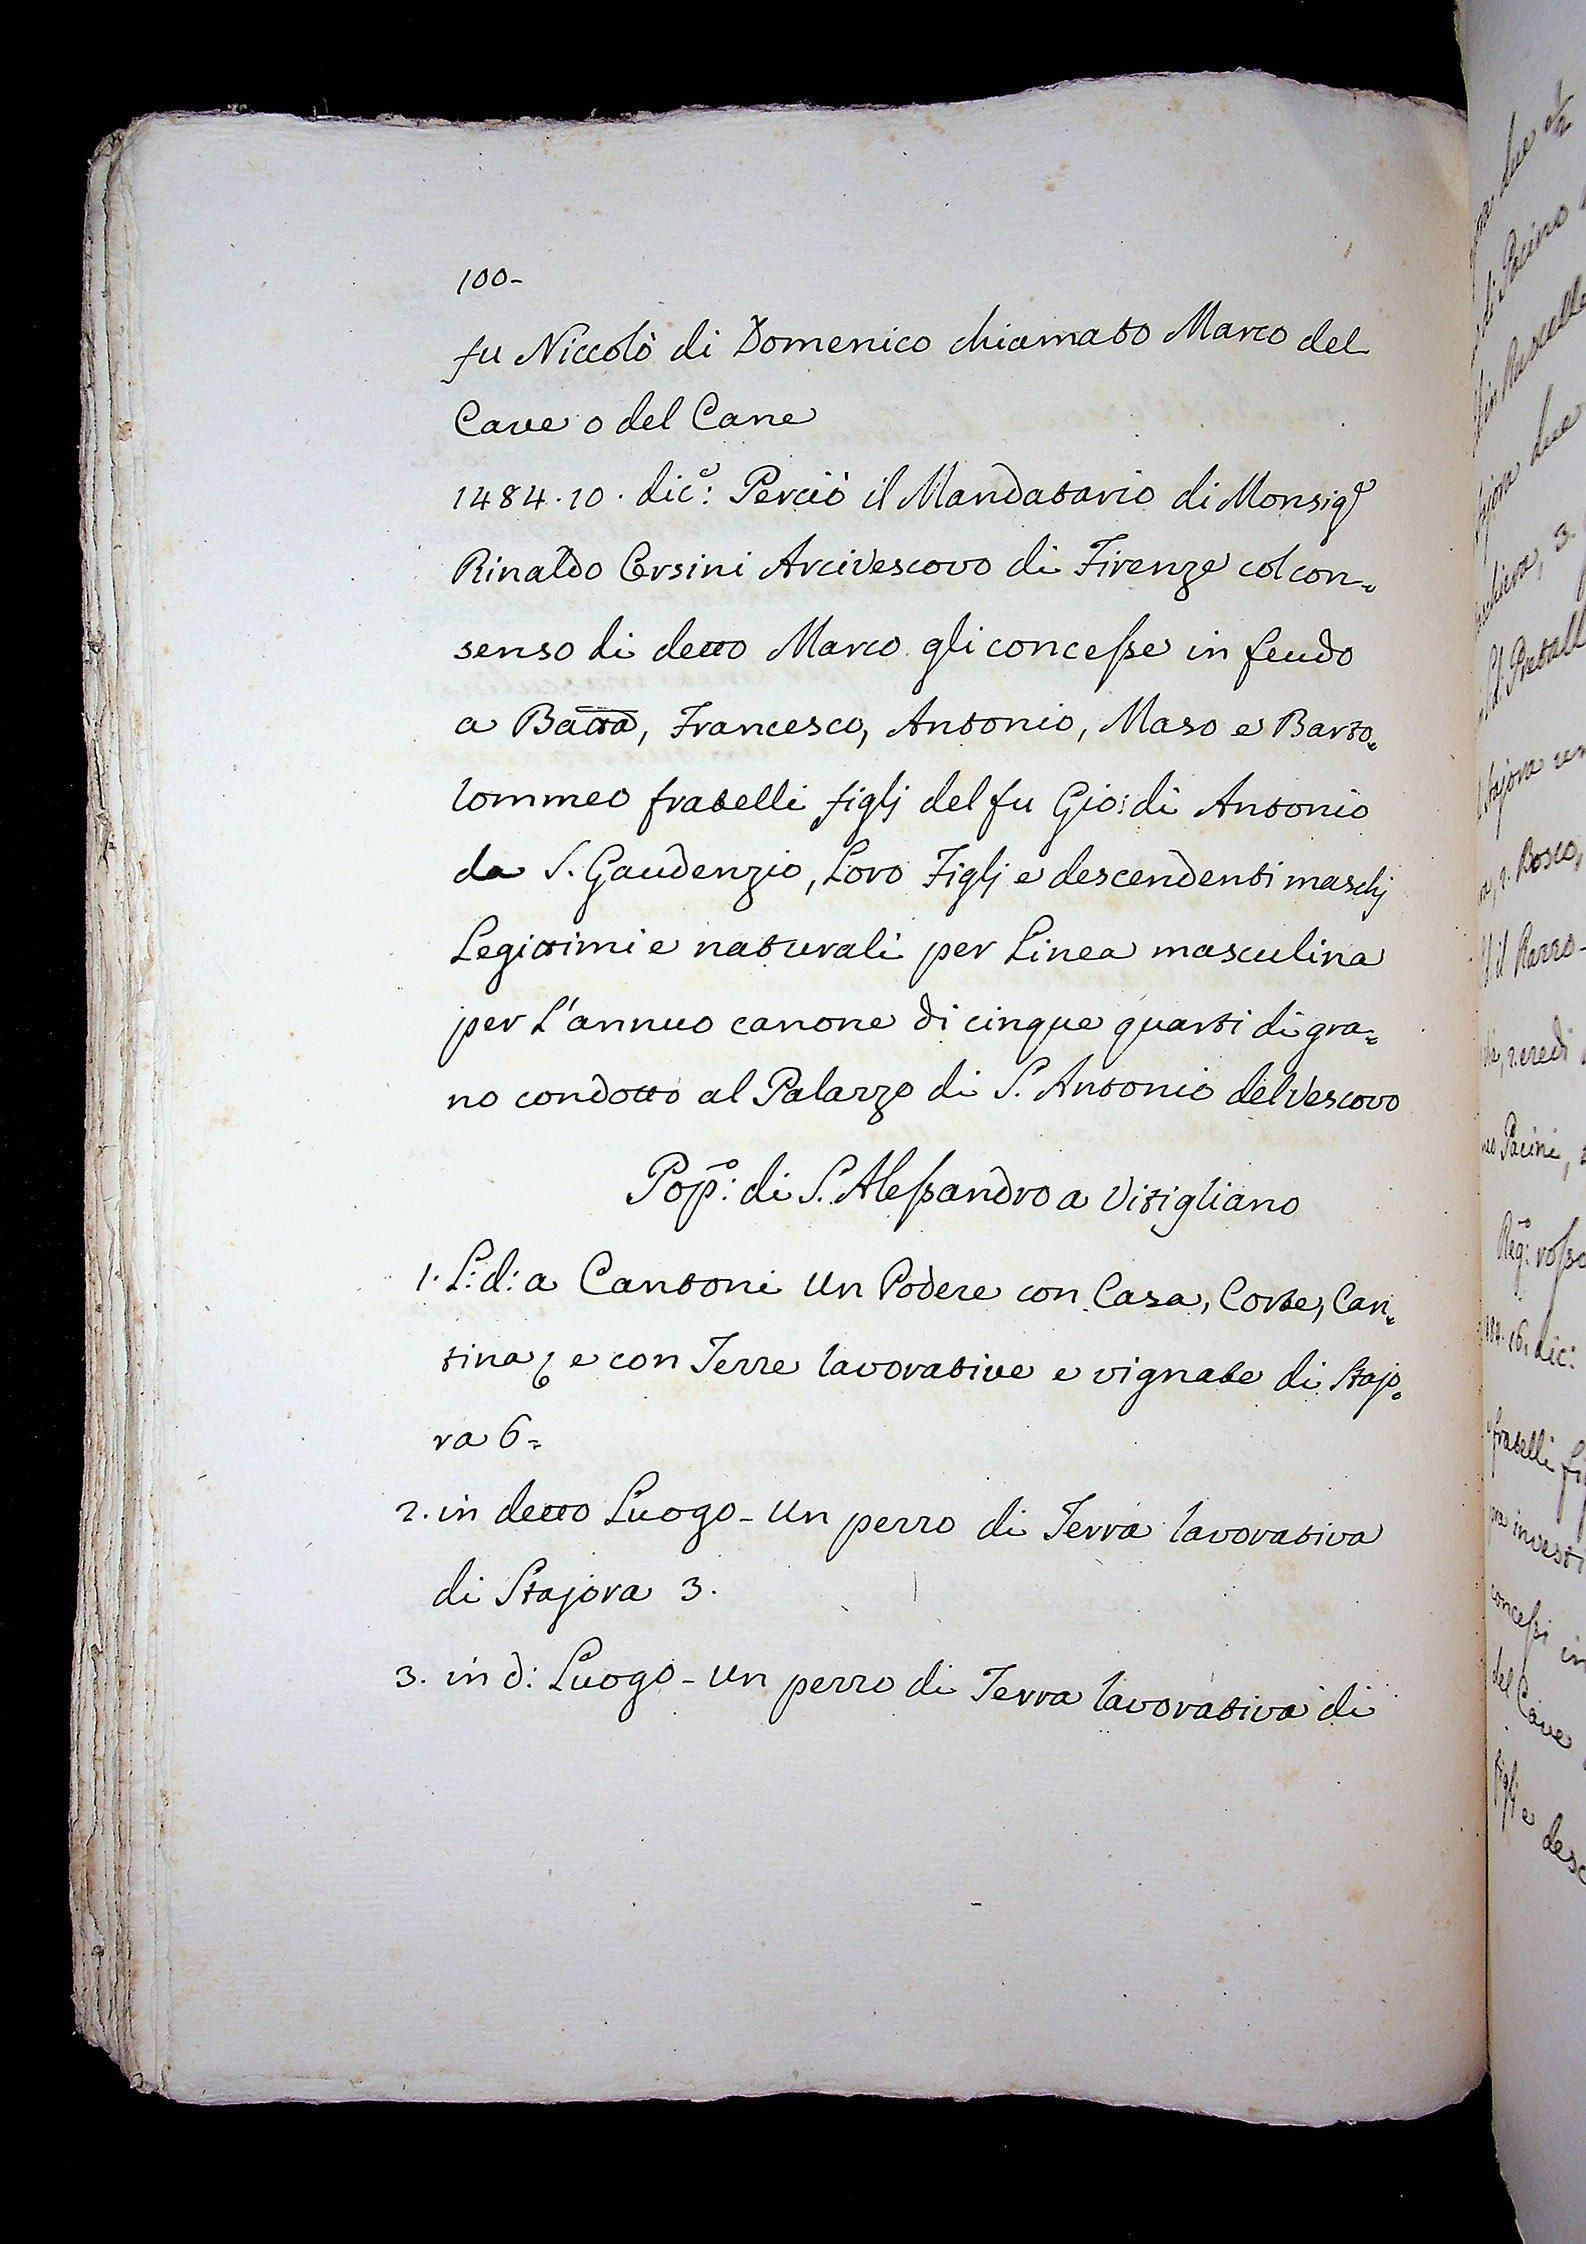 100-
fu Niccolò di Domenico chiamato Marco del
Cave o del Cane
1484. 10. dic.e: Perciò il Mandatario di Monsig.e
Rinaldo Orsini Arcivescovo di Firenze col con=
senso di detto Marco gli concesse in feudo
a Batta, Francesco, Antonio, Maso e Barto=
lommeo fratelli figlj del fu Gio: di Antonio
da S. Gaudenzio, Loro Figlj e descendenti maschj
Legittimi e naturali per Linea masculina
per L'annuo canone di cinque quarti di gra=
no condotto al Palazzo di S. Antonio del Vescovo
Pop.o: di S. Alessandro a Vitigliano
1. L: d: a Cantoni Un Podere con Casa, Corte, Can=
tina, e con Terre lavorative e vignate di Stajo=
ra 6=
2. in detto Luogo - Un pezzo di Terra lavorativa
di Stajora 3.
3. in d: Luogo - Un pezzo di Terra lavorativa di
due
di Pacino
due
3.
Bosco,
il
eredi
Pacini,
Reg.o: rosso
16. dic:
fratelli
investi
concessi in
del Cave
figli e desc